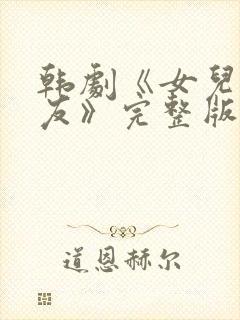 韩劇《女兒
友》完整版
道恩赫尔